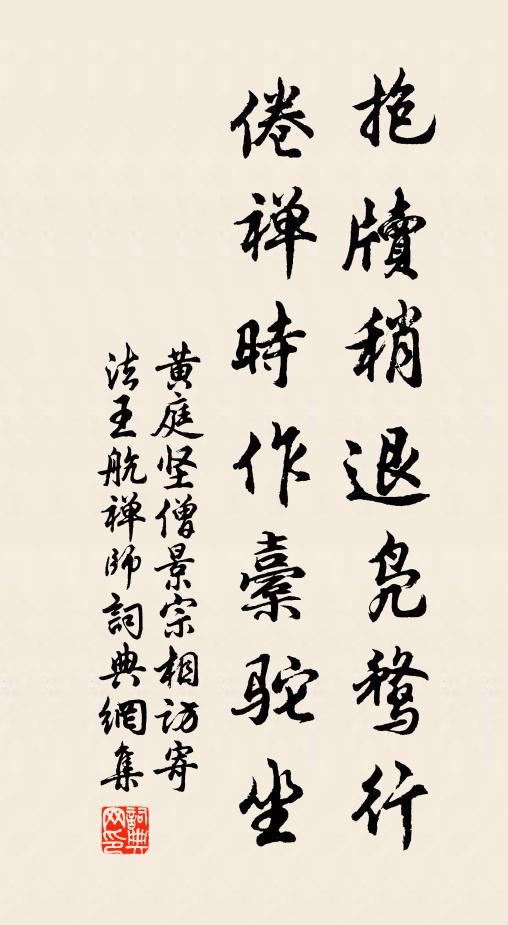 抱牘稍退凫鶩行
倦禅時作橐駝坐
黄庭坚僧景宗相訪寄
法王航禅師詞典網集
詞典
网印